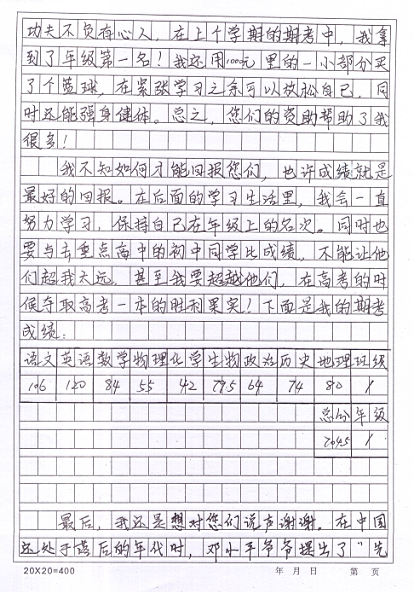 功夫不负有心人，在上个学期的期考中，我拿
到了年级第一名！我还用1000元里的一小部分买
了个篮球，在紧张学习之余可以放松自己，同
时还能强身健体。总之，您们的资助帮助了我
很多！
我不知如何才能回报您们，也许成绩就是
最好的回报。在后面的学习生活里，我会一直
努力学习，保持自己在年级上的名次。同时也
要与去重点高中的初中同学比成绩，不能让他
们超我太远，甚至我要超越他们，在高考的时
候夺取高考一本的胜利果实！下面是我的期考
成绩：
语文 英语 数学 物理 化学 生物 政治 历史 地理 班级
106 120 84 55 42 79.5 64 74 80 1
总分 年级
704.5 1
最后，我还是想对您们说声谢谢。在中国
还处于落后的年代时，邓小平爷爷提出了“先
20X20=400 年 月 日 第 页